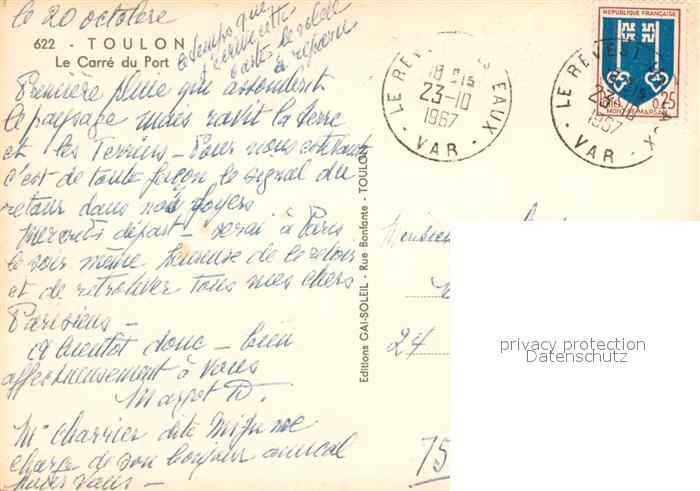 le 20 octobre
622 - TOULON
Le Carré du Port
le temps que
j'écrive cette
carte le soleil
a reparu
Première pluie qui assombrit
le paysage mais ravit la terre
et les Terriens - Pour nous
c'est de toute façon le signal du
retour dans nos foyers
Mercredi départ - serai à Paris
le soir même heureuse de ce retour
et de retrouver tous mes chers
Parisiens -
A bientôt donc - bien
affectueusement à vous
Margot D.
Me Charrier dite me
charge de son bonjour amical
pour vous -
Editions GAI-SOLEIL - Rue Bonfante - TOULON
LE REVEST EAUX
18 H15
23-10
1967
- VAR -
REPUBLIQUE FRANÇAISE
0,25
MONT-DE-MARSAN
LE REVEST EAUX
18 H15
23-10
1967
- VAR -
Monsieur
24
75
privacy protection
Datenschutz